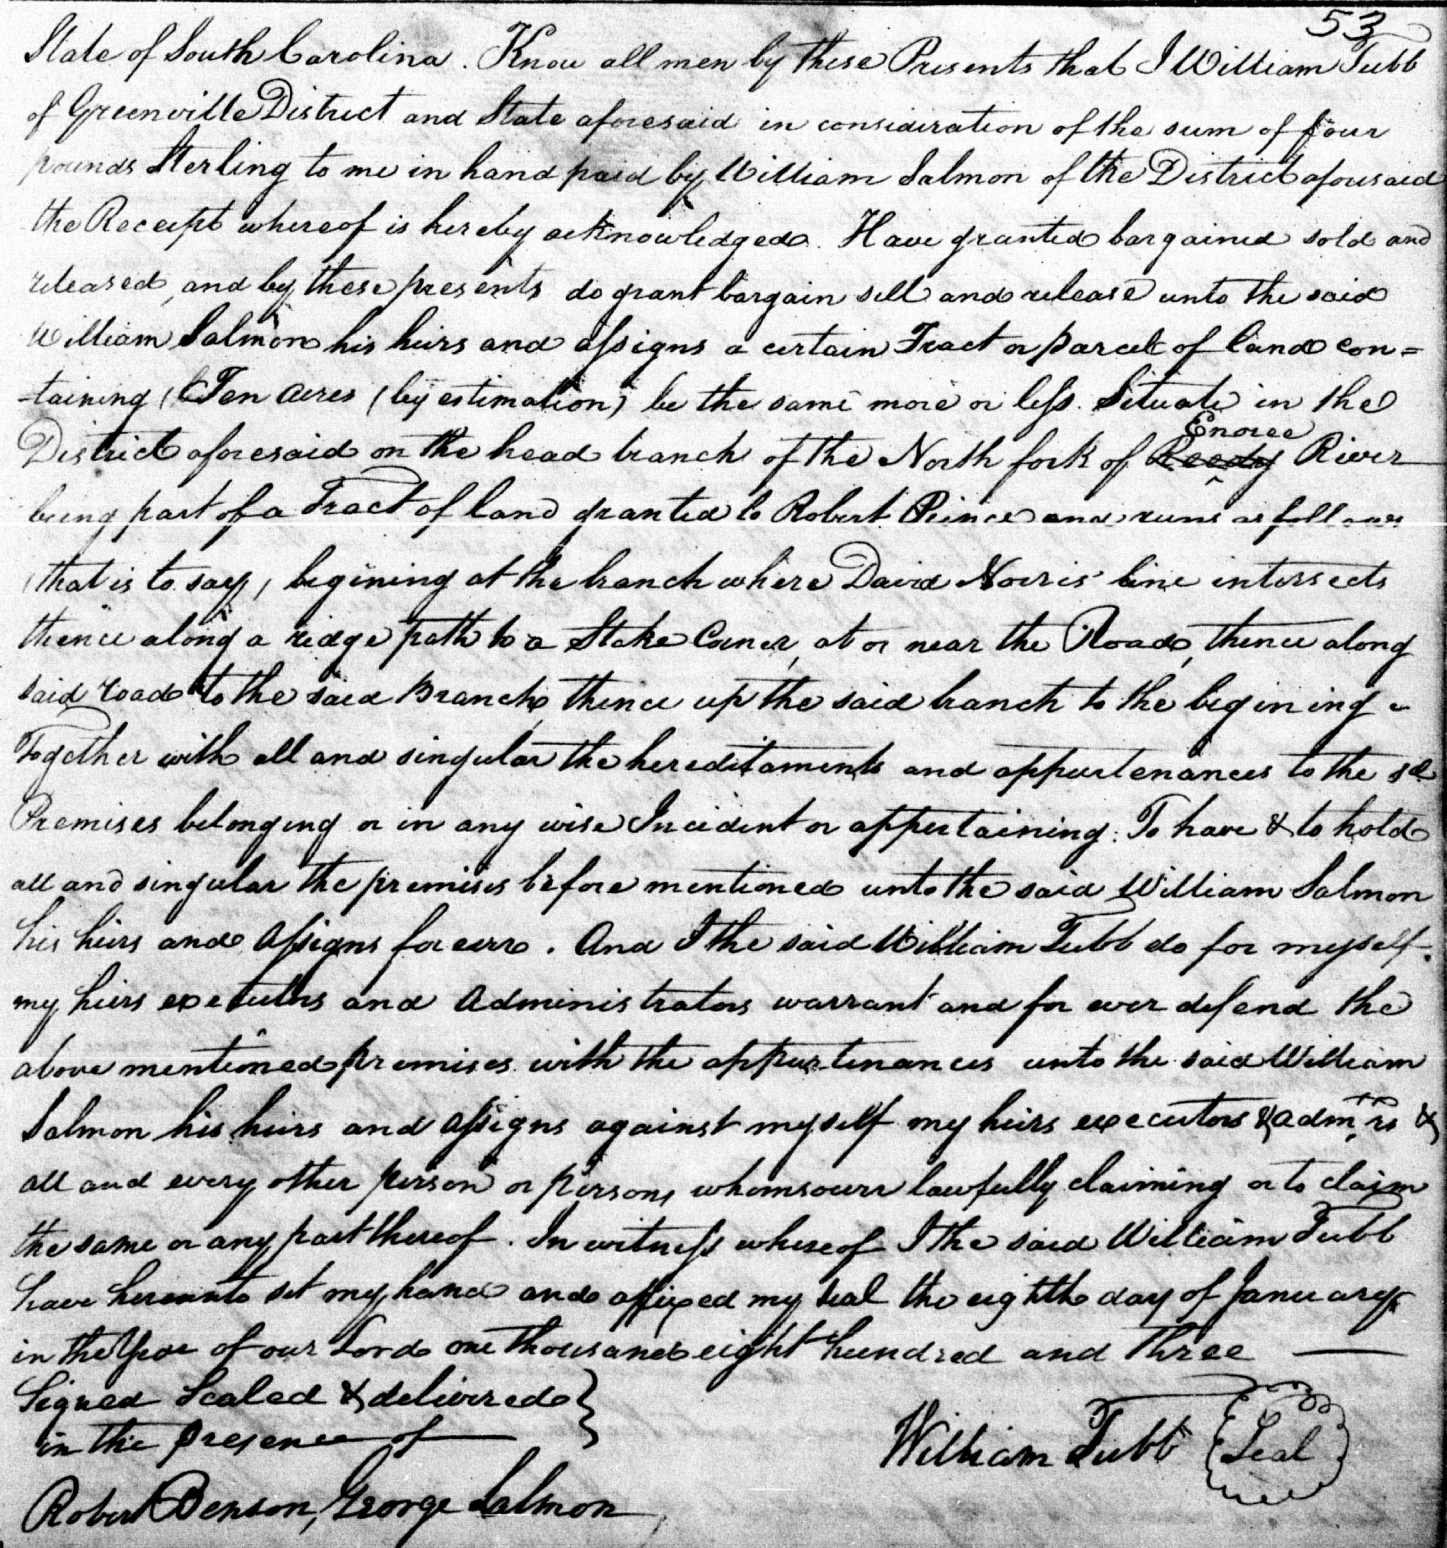 53
State of South Carolina. Know all men by these Presents that I William Tubb
of Greenville District and State aforesaid in consideration of the sum of four
pounds Sterling to me in hand paid by William Salmon of the District aforesaid
the Receipt whereof is hereby acknowledged. Have granted bargained sold and
released, and by these presents do grant bargain sell and release unto the said
William Salmon his heirs and assigns a certain Tract or parcel of land con=
-taining Ten acres (by estimation) be the same more or less. Situate in the
Enoree
District aforesaid on the head branch of the North fork of Reedy River
being part of a Tract of land granted to Robert Prince and runs as follows
(that is to say) begining at the branch where David Norris' line intersects
thence along a ridge path to a Stake Corner, at or near the Road, thence along
said road to the said Branch, thence up the said branch to the begining
Together with all and singular the hereditaments and appurtenances to the sd
Premises belonging or in any wise Incident or appertaining. To have & to hold
all and singular the premises before mentioned unto the said William Salmon
his heirs and assigns forever. And I the said William Tubb do for myself
my heirs executors and Administrators warrant and for ever defend the
above mentioned premises with the appurtenances unto the said William
Salmon his heirs and assigns against myself my heirs executors & admrs &
all and every other person or persons whomsoever lawfully claiming or to claim
the same or any part thereof. In witness whereof I the said William Tubb
have hereunto set my hand and affixed my seal the eighth day of January
in the Year of our Lord one thousand eight hundred and three
Signed Sealed & delivered
in the presence of
William Tubb Seal
Robert Benson, George Salmon